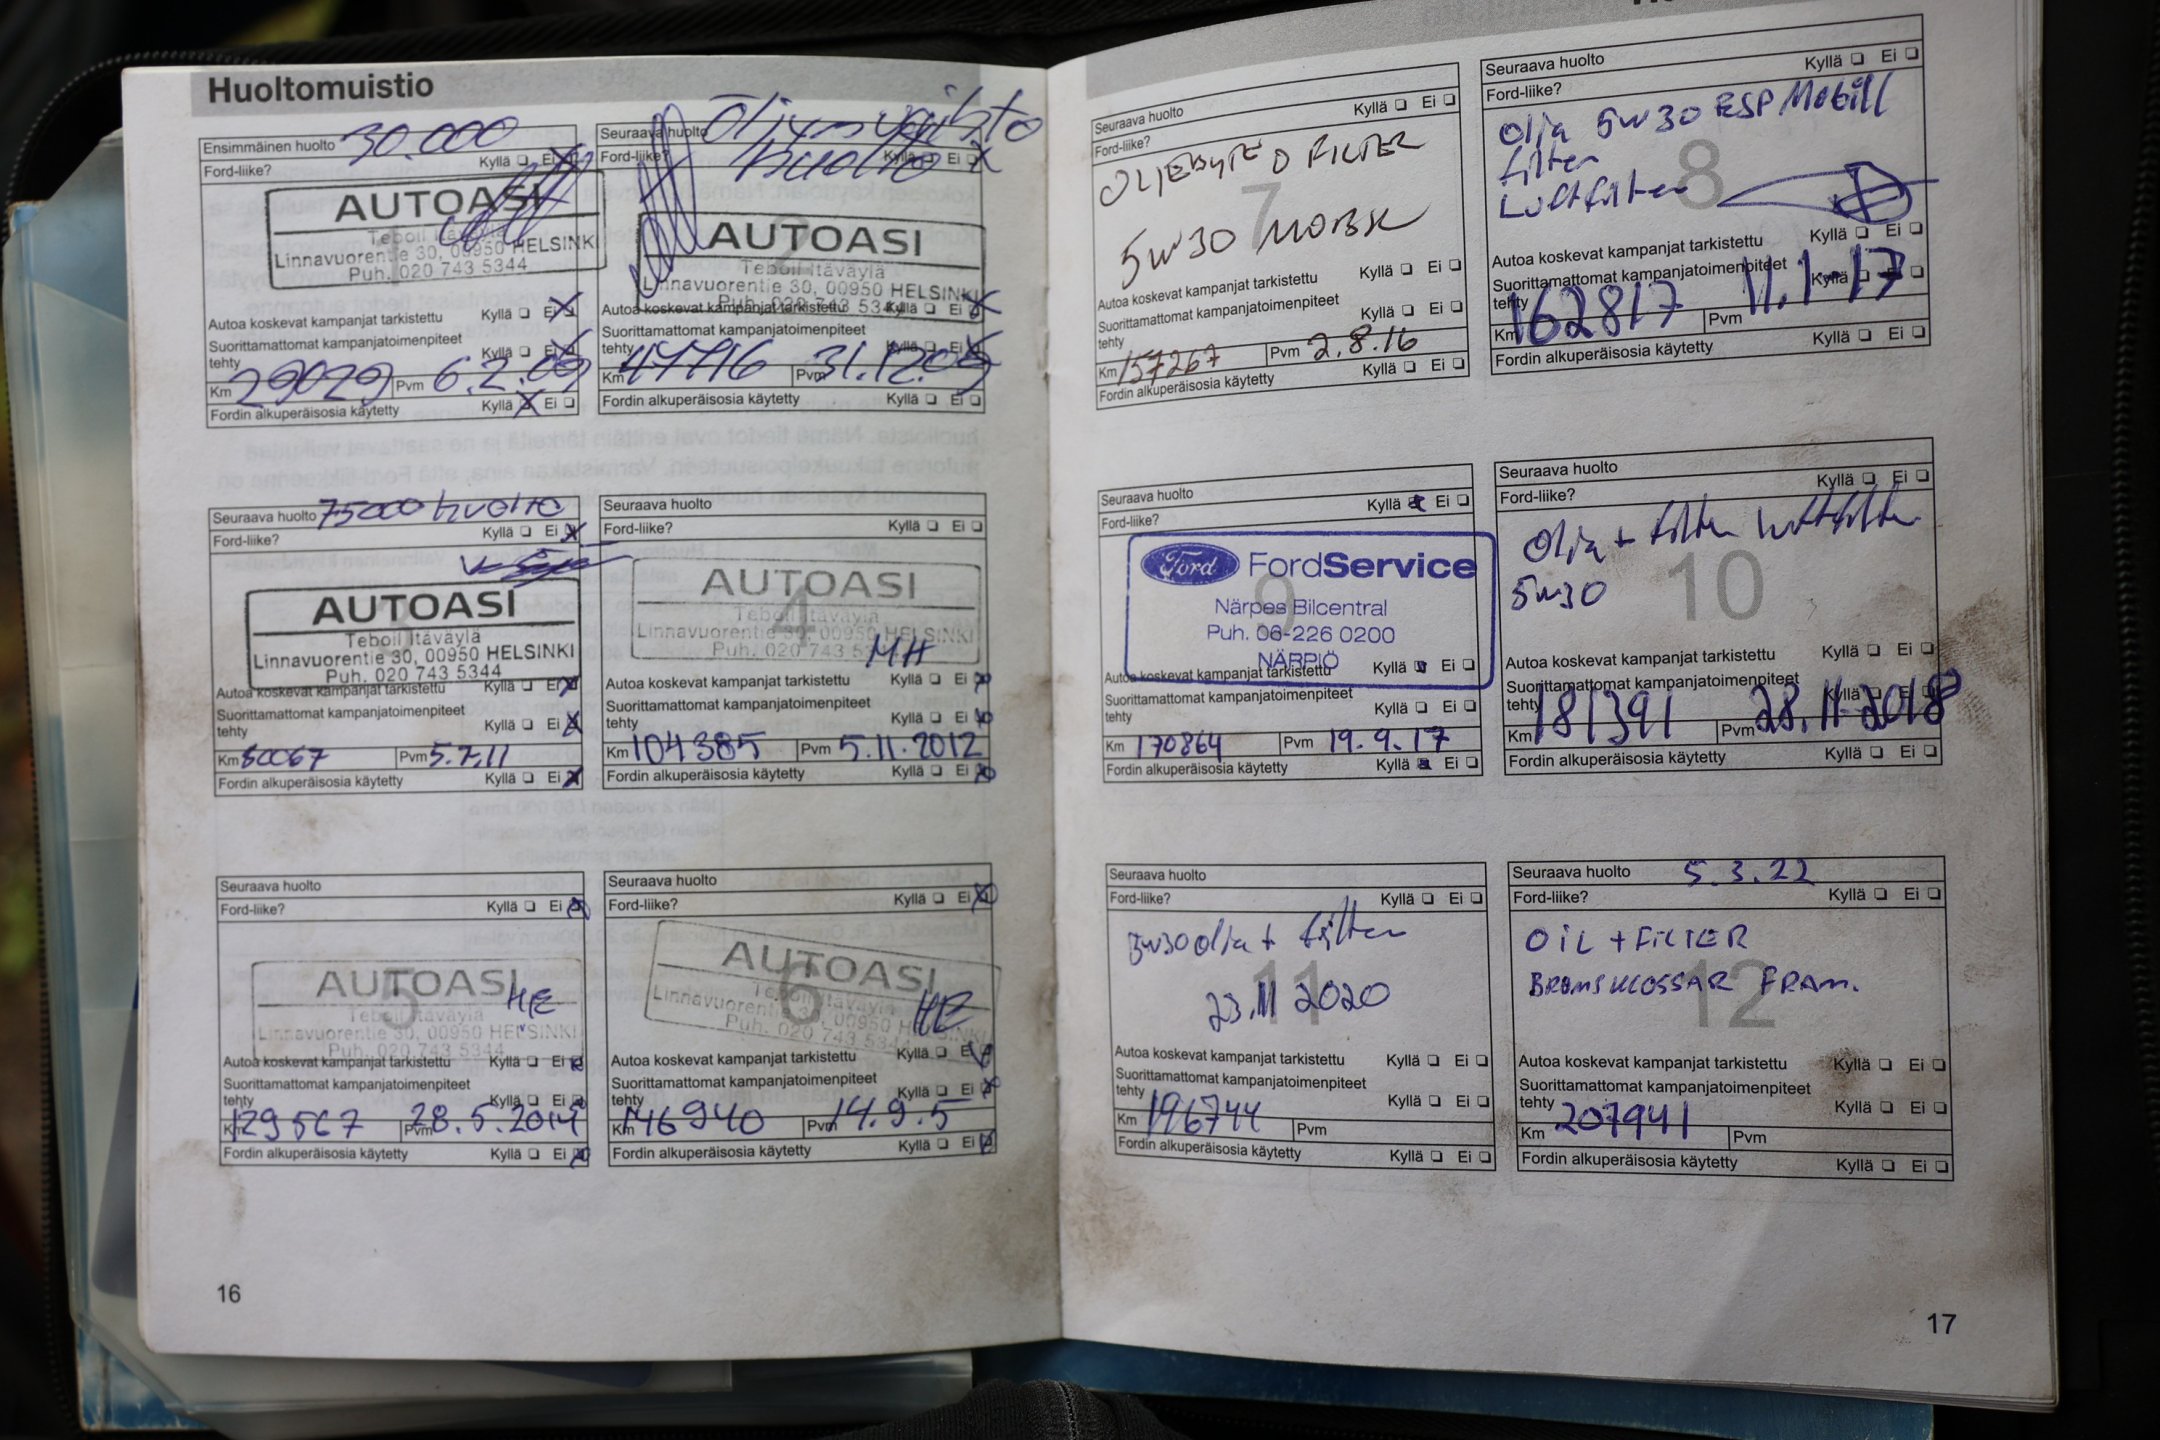 Huoltomuistio
Ensimmäinen huolto 30.000
Ford-liike? Kyllä ❏ Ei ❏
1
AUTOASI
Teboil Itäväylä
Linnavuorentie 30, 00950 HELSINKI
Puh. 020 743 5344
Autoa koskevat kampanjat tarkistettu Kyllä ❏ Ei ❏
Suorittamattomat kampanjatoimenpiteet
tehty Kyllä ❏ Ei ❏
Km 29029 Pvm 6.2.09
Fordin alkuperäisosia käytetty Kyllä ❏ Ei ❏
Seuraava huolto Öljynvaihto
Ford-liike? huolto Kyllä ❏ Ei ❏
2
AUTOASI
Teboil Itäväylä
Linnavuorentie 30, 00950 HELSINKI
Puh. 020 743 5344
Autoa koskevat kampanjat tarkistettu Kyllä ❏ Ei ❏
Suorittamattomat kampanjatoimenpiteet
tehty Kyllä ❏ Ei ❏
Km Pvm 31.12.09
Fordin alkuperäisosia käytetty Kyllä ❏ Ei ❏
Seuraava huolto 75000 huolto
Ford-liike? Kyllä ❏ Ei ❏
3
AUTOASI
Teboil Itäväylä
Linnavuorentie 30, 00950 HELSINKI
Puh. 020 743 5344
Autoa koskevat kampanjat tarkistettu Kyllä ❏ Ei ❏
Suorittamattomat kampanjatoimenpiteet
tehty Kyllä ❏ Ei ❏
Km Pvm 5.7.11
Fordin alkuperäisosia käytetty Kyllä ❏ Ei ❏
Seuraava huolto
Ford-liike? Kyllä ❏ Ei ❏
4
AUTOASI
Teboil Itäväylä
Linnavuorentie 30, 00950 HELSINKI
Puh. 020 743 5344 MH
Autoa koskevat kampanjat tarkistettu Kyllä ❏ Ei ❏
Suorittamattomat kampanjatoimenpiteet
tehty Kyllä ❏ Ei ❏
Km 104385 Pvm 5.11.2012
Fordin alkuperäisosia käytetty Kyllä ❏ Ei ❏
Seuraava huolto
Ford-liike? Kyllä ❏ Ei ❏
5
AUTOASI HE
Teboil Itäväylä
Linnavuorentie 30, 00950 HELSINKI
Puh. 020 743 5344
Autoa koskevat kampanjat tarkistettu Kyllä ❏ Ei ❏
Suorittamattomat kampanjatoimenpiteet
tehty Kyllä ❏ Ei ❏
Km 129567 Pvm 28.5.2014
Fordin alkuperäisosia käytetty Kyllä ❏ Ei ❏
Seuraava huolto
Ford-liike? Kyllä ❏ Ei ❏
6
AUTOASI
Teboil Itäväylä
Linnavuorentie 30, 00950 HELSINKI HE
Puh. 020 743 5344
Autoa koskevat kampanjat tarkistettu Kyllä ❏ Ei ❏
Suorittamattomat kampanjatoimenpiteet
tehty Kyllä ❏ Ei ❏
Km 146940 Pvm 14.9.5
Fordin alkuperäisosia käytetty Kyllä ❏ Ei ❏
16
Seuraava huolto
Ford-liike? Kyllä ❏ Ei ❏
OLJEBYTE O FILTER
7
5W30
Autoa koskevat kampanjat tarkistettu Kyllä ❏ Ei ❏
Suorittamattomat kampanjatoimenpiteet
tehty Kyllä ❏ Ei ❏
Km 157267 Pvm 2.8.16
Fordin alkuperäisosia käytetty Kyllä ❏ Ei ❏
Seuraava huolto
Ford-liike? Kyllä ❏ Ei ❏
Olja 5w30 ESP Mobill
filter
Luftfilter
8
Autoa koskevat kampanjat tarkistettu Kyllä ❏ Ei ❏
Suorittamattomat kampanjatoimenpiteet
tehty Kyllä ❏ Ei ❏
Km 162817 Pvm 11.1-17
Fordin alkuperäisosia käytetty Kyllä ❏ Ei ❏
Seuraava huolto
Ford-liike? Kyllä ❏ Ei ❏
Ford FordService
9
Närpes Bilcentral
Puh. 06-226 0200
NÄRPIÖ
Autoa koskevat kampanjat tarkistettu Kyllä ❏ Ei ❏
Suorittamattomat kampanjatoimenpiteet
tehty Kyllä ❏ Ei ❏
Km 170864 Pvm 19.9.17
Fordin alkuperäisosia käytetty Kyllä ❏ Ei ❏
Seuraava huolto
Ford-liike? Kyllä ❏ Ei ❏
Olja + filter luftfilter
5w30
10
Autoa koskevat kampanjat tarkistettu Kyllä ❏ Ei ❏
Suorittamattomat kampanjatoimenpiteet
tehty Kyllä ❏ Ei ❏
Km 181391 Pvm 28.11-2018
Fordin alkuperäisosia käytetty Kyllä ❏ Ei ❏
Seuraava huolto
Ford-liike? Kyllä ❏ Ei ❏
5w30 olja + filter
11
23.11 2020
Autoa koskevat kampanjat tarkistettu Kyllä ❏ Ei ❏
Suorittamattomat kampanjatoimenpiteet
tehty Kyllä ❏ Ei ❏
Km 196744 Pvm
Fordin alkuperäisosia käytetty Kyllä ❏ Ei ❏
Seuraava huolto 5.3.22
Ford-liike? Kyllä ❏ Ei ❏
OIL + FILTER
BROMSKLOSSAR FRAM.
12
Autoa koskevat kampanjat tarkistettu Kyllä ❏ Ei ❏
Suorittamattomat kampanjatoimenpiteet
tehty Kyllä ❏ Ei ❏
Km 207941 Pvm
Fordin alkuperäisosia käytetty Kyllä ❏ Ei ❏
17